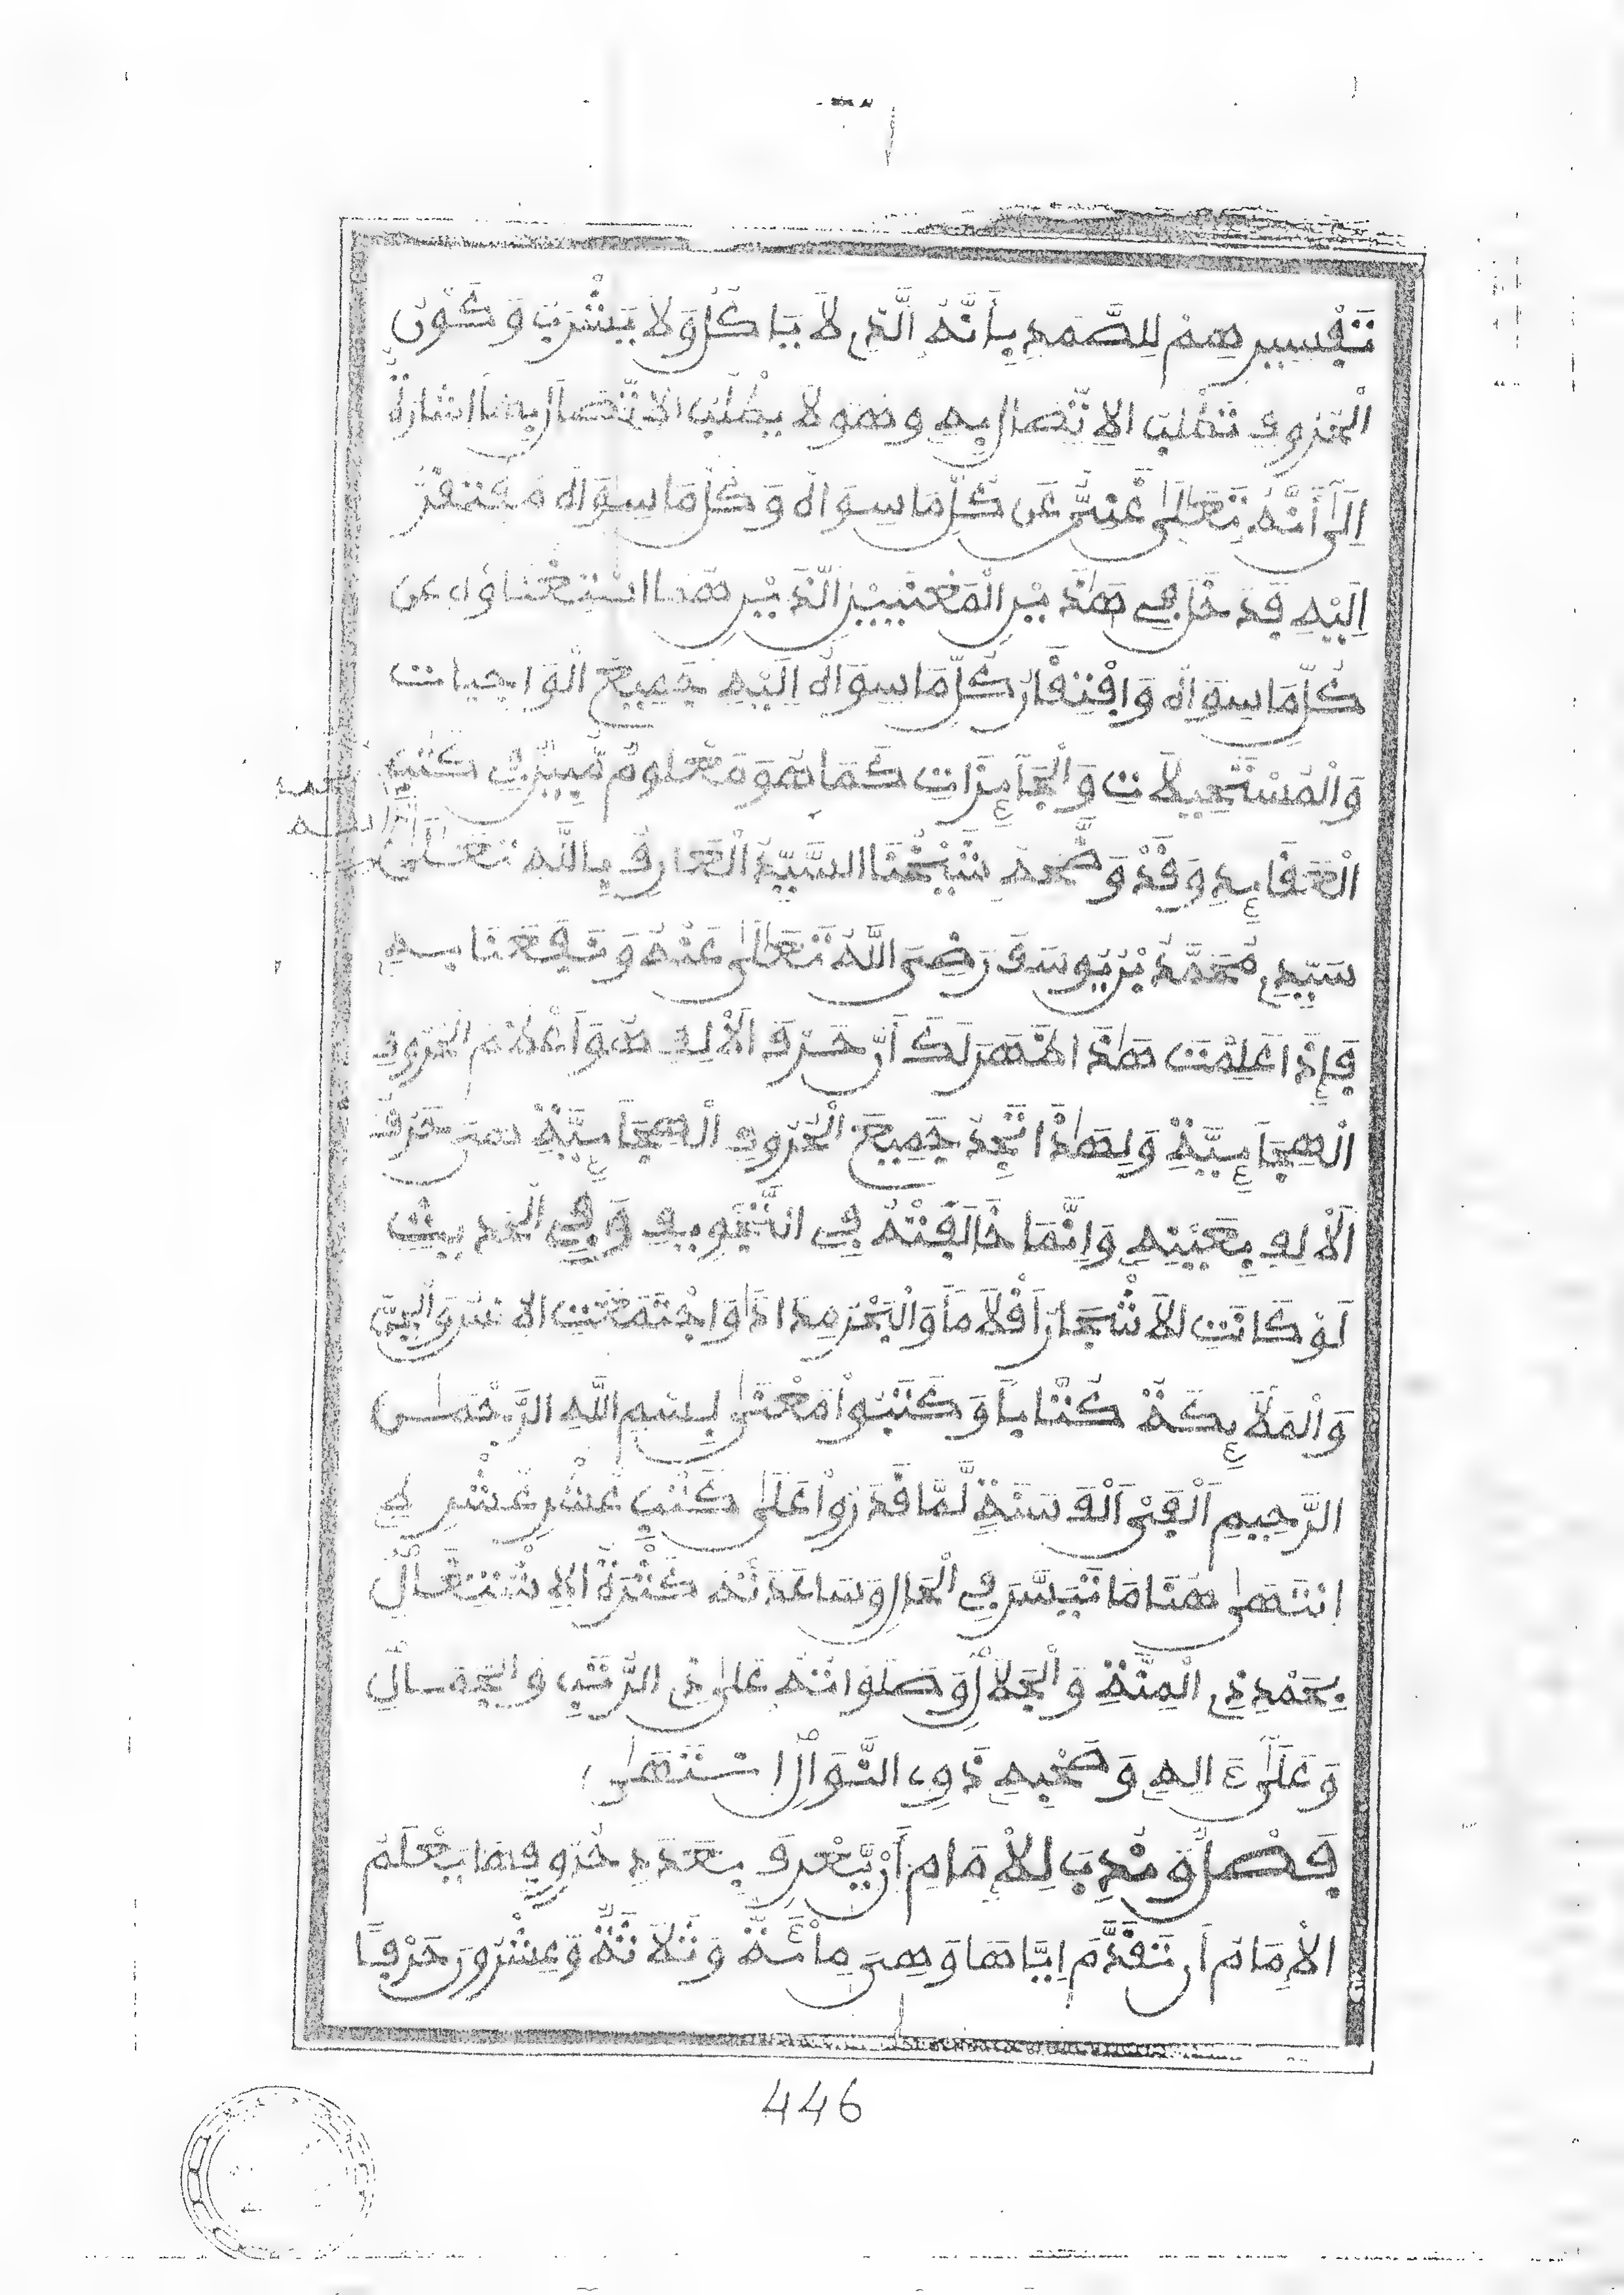 تَفْسِيرِهِمْ لِلصَّمَدِ بِأَنَّهُ الَّذِي لَا يَاكُلُ وَلَا يَشْرَبُ وَكَوْنُ
الْحُرُوفِ تَطْلُبُ الِاتِّصَالَ بِهِ وَهُوَ لَا يَطْلُبُ الِاتِّصَالَ بِهَا إِشَارَةٌ
إِلَى أَنَّهُ تَعَالَى غَنِيٌّ عَنْ كُلِّ مَا سِوَاهُ وَكُلُّ مَا سِوَاهُ مُفْتَقِرٌ
إِلَيْهِ قَدْ دَخَلَ فِي هَذَيْنِ الْمَعْنَيَيْنِ الَّذَيْنِ هُمَا اسْتِغْنَاؤُهُ عَنْ
كُلِّ مَا سِوَاهُ وَافْتِقَارُ كُلِّ مَا سِوَاهُ إِلَيْهِ جَمِيعُ الْوَاجِبَاتِ
وَالْمُسْتَحِيلَاتِ وَالْجَائِزَاتِ كَمَا هُوَ مَعْلُومٌ مُبَيَّنٌ فِي كُتُبِ
الْعَقَائِدِ وَقَدْ وَضَّحَهُ شَيْخُنَا السَّيِّدُ الْعَارِفُ بِاللَّهِ تَعَالَى
سَيِّدِي مُحَمَّدُ بْنُ يُوسُفَ رَضِيَ اللَّهُ تَعَالَى عَنْهُ وَنَفَعَنَا بِهِ
فَإِذَا عَلِمْتَ هَذَا ظَهَرَ لَكَ أَنَّ حَرْفَ الْأَلِفِ هُوَ أَعْظَمُ الْحُرُوفِ
الْهِجَائِيَّةِ وَلِهَذَا تَجِدُ جَمِيعَ الْحُرُوفِ الْهِجَائِيَّةِ هِيَ حَرْفُ
الْأَلِفِ بِعَيْنِهِ وَإِنَّمَا خَالَفَتْهُ فِي التَّجْوِيفِ وَفِي الْحَدِيثِ
لَوْ كَانَتِ الْأَشْجَارُ أَقْلَامًا وَالْبَحْرُ مِدَادًا وَاجْتَمَعَتِ الْإِنْسُ وَالْجِنُّ
وَالْمَلَائِكَةُ كُتَّابًا وَكَتَبُوا مَعْنَى بِسْمِ اللَّهِ الرَّحْمَنِ
الرَّحِيمِ أَلْفَيْ أَلْفِ سَنَةٍ لَمَا قَدَرُوا عَلَى كَتْبِ عُشْرِ عُشْرِهِ
انْتَهَى هُنَا مَا تَيَسَّرَ فِي الْحَالِ وَسَاعَدَتْهُ كَثْرَةُ الِاشْتِغَالِ
بِحَمْدِ ذِي الْمِنَّةِ وَالْجَلَالِ وَصَلَوَاتُهُ عَلَى ذِي الرُّتَبِ وَالْجَمَالِ
وَعَلَى ءَالِهِ وَصَحْبِهِ ذَوِي النَّوَالِ انْتَهَى
فَصْلٌ وَنُدِبَ لِلْإِمَامِ أَنْ يَعْرِفَ بِعَدَدِ حُرُوفِهَا يَعْلَمُ
الْإِمَامُ أَنْ تَقَدَّمَ إِيَّاهَا وَهِيَ مِائَةٌ وَثَلَاثَةٌ وَعِشْرُونَ حَرْفًا
446